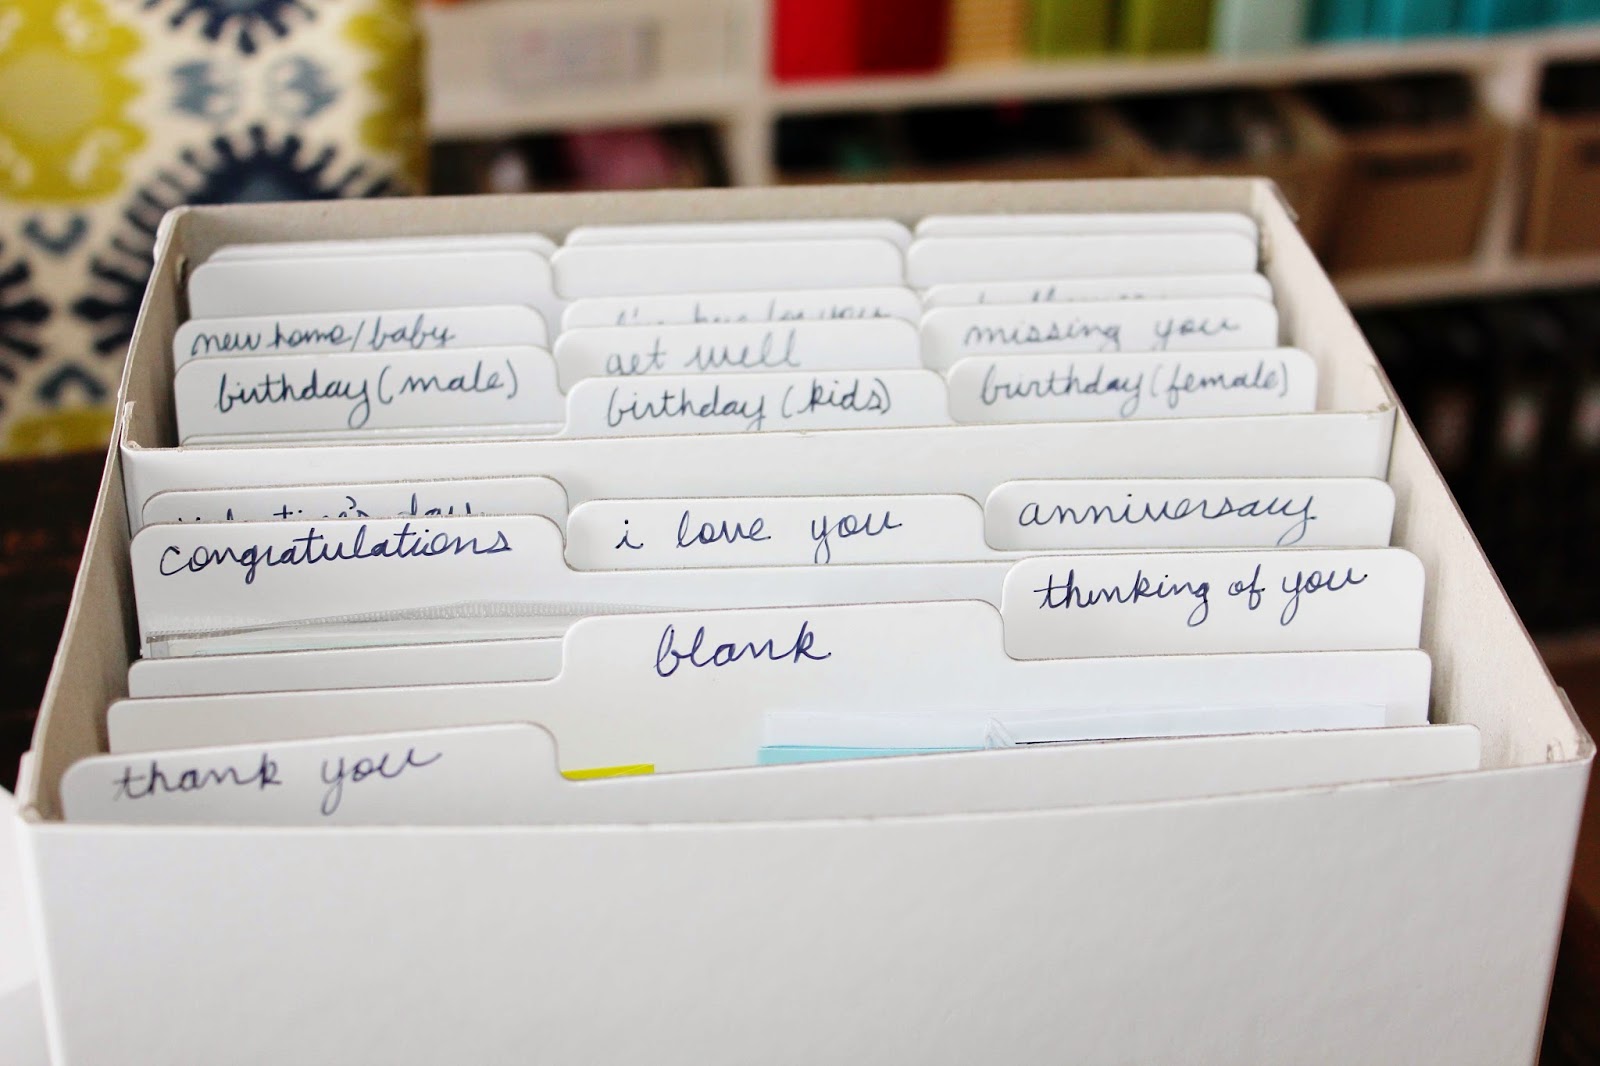 new home/baby
get well
missing you
birthday (male)
birthday (kids)
birthday (female)
valentine's day
i love you
anniversary
congratulations
thinking of you
blank
thank you